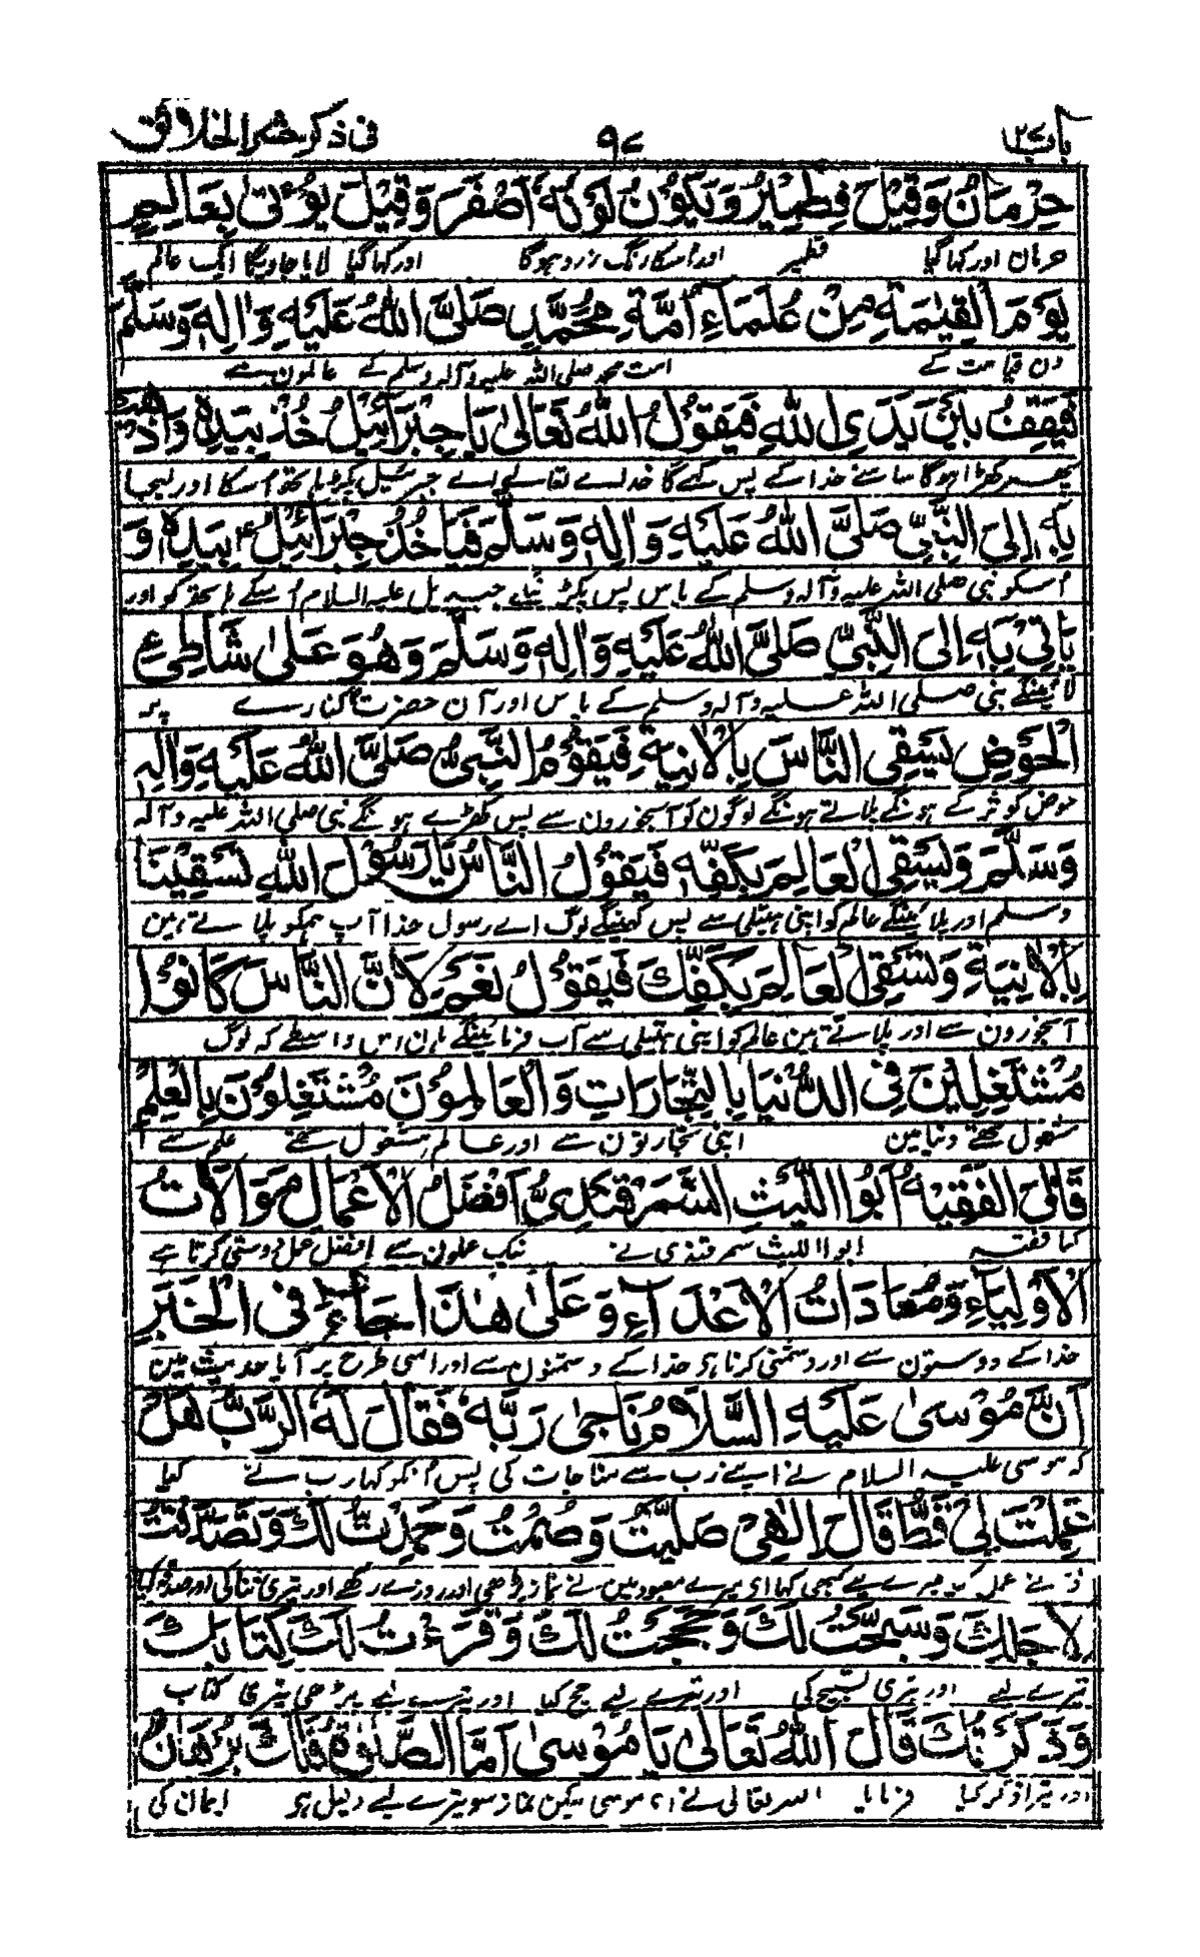 باب ٢٧ ٩٧ فى ذكر حشر الخلائق
حِرْمَانٌ وَقِيْلَ قِطْمِيْرٌ وَيَكُوْنُ لَوْنُهٗ اَصْفَرَ وَقِيْلَ يُؤْتٰى بِعَالِمٍ
حرمان اور کہا گیا قطمیر اور اسکا رنگ زرد ہوگا اور کہا گیا لایا جاویگا ایک عالم
يَوْمَ الْقِيٰمَةِ مِنْ عُلَمَاءِ اُمَّةِ مُحَمَّدٍ صَلَّى اللهُ عَلَيْهِ وَاٰلِهٖ وَسَلَّمَ
دن قیامت کے امت محمد صلی اللہ علیہ وآلہ وسلم کے عالمون سے
فَيَقِفُ بَيْنَ يَدَىِ اللهِ فَيَقُوْلُ اللهُ تَعَالٰى يَا جِبْرَائِيْلُ خُذْ بِيَدِهٖ وَاذْهَبْ
پھر کھڑا ہوگا سامنے خدا کے پس کہے گا خداے تعالے اے جبرئیل پکڑ ہاتھ اسکا اور لیجا
بِهٖ اِلَى النَّبِىِّ صَلَّى اللهُ عَلَيْهِ وَاٰلِهٖ وَسَلَّمَ فَيَاخُذُ جِبْرَائِيْلُ بِيَدِهٖ وَ
اسکو نبی صلی اللہ علیہ وآلہ وسلم کے پاس پس پکڑینگے جبریل علیہ السلام اسکے ہاتھ کو اور
يَاتِىْ بِهٖ اِلَى النَّبِىِّ صَلَّى اللهُ عَلَيْهِ وَاٰلِهٖ وَسَلَّمَ وَهُوَ عَلٰى شَاطِئِ
لائینگے نبی صلی اللہ علیہ وآلہ وسلم کے پاس اور آن حضرت کنارے پر
الْحَوْضِ يَسْقِى النَّاسَ بِالْاٰنِيَةِ فَيَقُوْمُ النَّبِىُّ صَلَّى اللهُ عَلَيْهِ وَاٰلِهٖ
حوض کوثر کے ہونگے پلاتے ہونگے لوگون کو آبخورون سے پس کھڑے ہونگے نبی صلی اللہ علیہ وآلہ
وَسَلَّمَ وَيَسْقِى الْعَالِمَ بِكَفِّهٖ فَيَقُوْلُ النَّاسُ يَا رَسُوْلَ اللهِ تَسْقِيْنَا
وسلم اور پلائینگے عالم کو اپنی ہتیلی سے پس کہینگے لوگ اے رسول خدا آپ ہمکو پلاتے ہین
بِالْاٰنِيَةِ وَتَسْقِى الْعَالِمَ بِكَفِّكَ فَيَقُوْلُ نَعَمْ لِاَنَّ النَّاسَ كَانُوْا
آبخورون سے اور پلاتے ہین عالم کو اپنی ہتیلی سے آپ فرمائینگے ہان اس واسطے کہ لوگ
مُشْتَغِلِيْنَ فِى الدُّنْيَا بِالتِّجَارَاتِ وَالْعَالِمُوْنَ مُشْتَغِلُوْنَ بِالْعِلْمِ
مشغول تھے دنیا مین اپنی تجارتون سے اور عالم مشغول تھے علم سے
قَالَ الْفَقِيْهُ اَبُوا اللَّيْثِ السَّمَرْقَنْدِىُّ اَفْضَلُ الْاَعْمَالِ مُوَالَاتُ
کہا فقیہ ابو اللیث سمرقندی نے نیک عملون سے افضل عمل دوستی کرنا ہے
الْاَوْلِيَاءِ وَمُعَادَاتُ الْاَعْدَاءِ وَعَلٰى هٰذَا جَاءَ فِى الْخَبَرِ
خدا کے دوستون سے اور دشمنی کرنا ہو خدا کے دشمنون سے اور اسی طرح پر آیا حدیث مین
اَنَّ مُوْسٰى عَلَيْهِ السَّلَامُ نَاجٰى رَبَّهٗ فَقَالَ لَهُ الرَّبُّ هَلْ
کہ موسی علیہ السلام نے اپنے رب سے مناجات کی پس انکو کہا رب نے کیا
عَمِلْتَ لِىْ قَطُّ قَالَ اِلٰهِىْ صَلَّيْتُ وَصُمْتُ وَحَمِدْتُ لَكَ وَتَصَدَّقْتُ
تونے عمل کیا میرے لیے کبھی کہا اے میرے معبود مین نے نماز پڑھی اور روزے رکھے اور تیری ثنا کی اور صدقہ کیا
لِاَجْلِكَ وَسَبَّحْتُ لَكَ وَحَجَجْتُ لَكَ وَقَرَءْتُ لَكَ كِتَابَكَ
تیرے لیے اور تیری تسبیح کی اور تیرے لیے حج کیا اور تیرے لیے پڑھی تیری کتاب
وَذَكَرْتُكَ قَالَ اللهُ تَعَالٰى يَا مُوْسٰى اَمَّا الصَّلٰوةُ فَلَكَ بُرْهَانٌ
اور تیرا ذکر کیا فرمایا اللہ تعالی نے اے موسی لیکن نماز سو تیرے لیے دلیل ہو ایمان کی